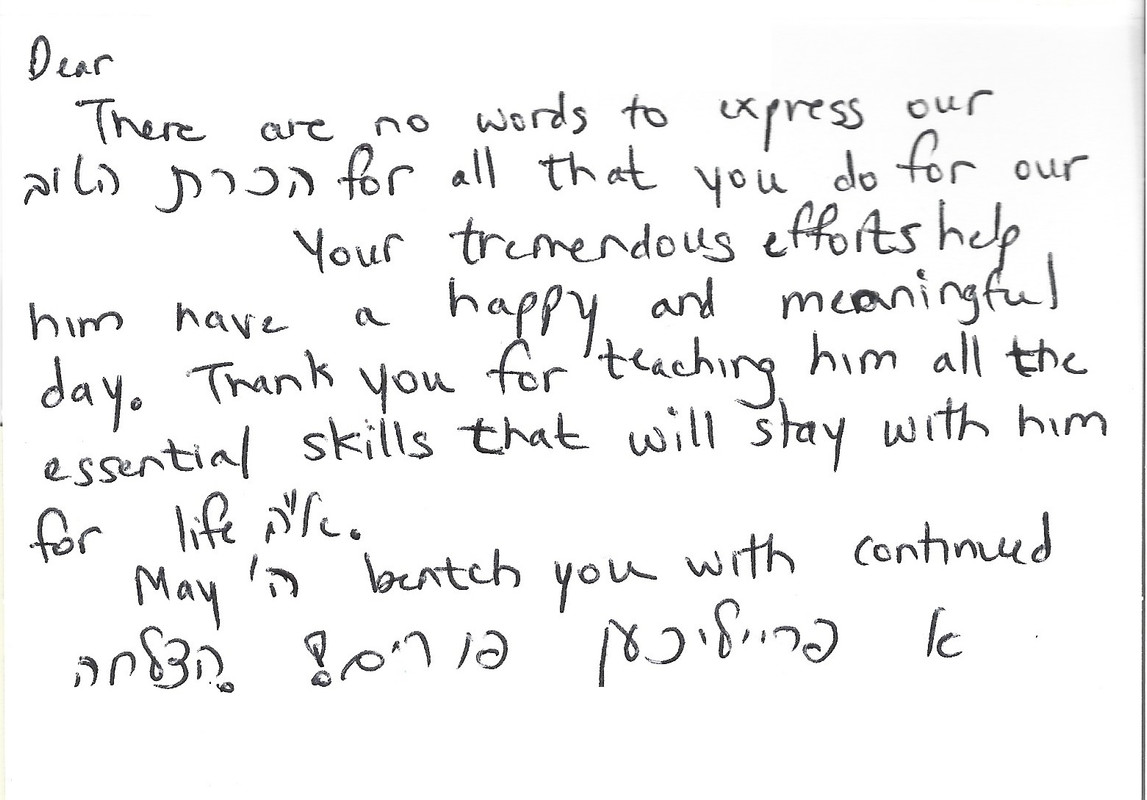 Dear
There are no words to express our
הכרת הטוב for all that you do for our
Your tremendous efforts help
him have a happy and meaningful
day. Thank you for teaching him all the
essential skills that will stay with him
for life אי״ה.
May ה' bentch you with continued
הצלחה. א פריילिכען פורים!